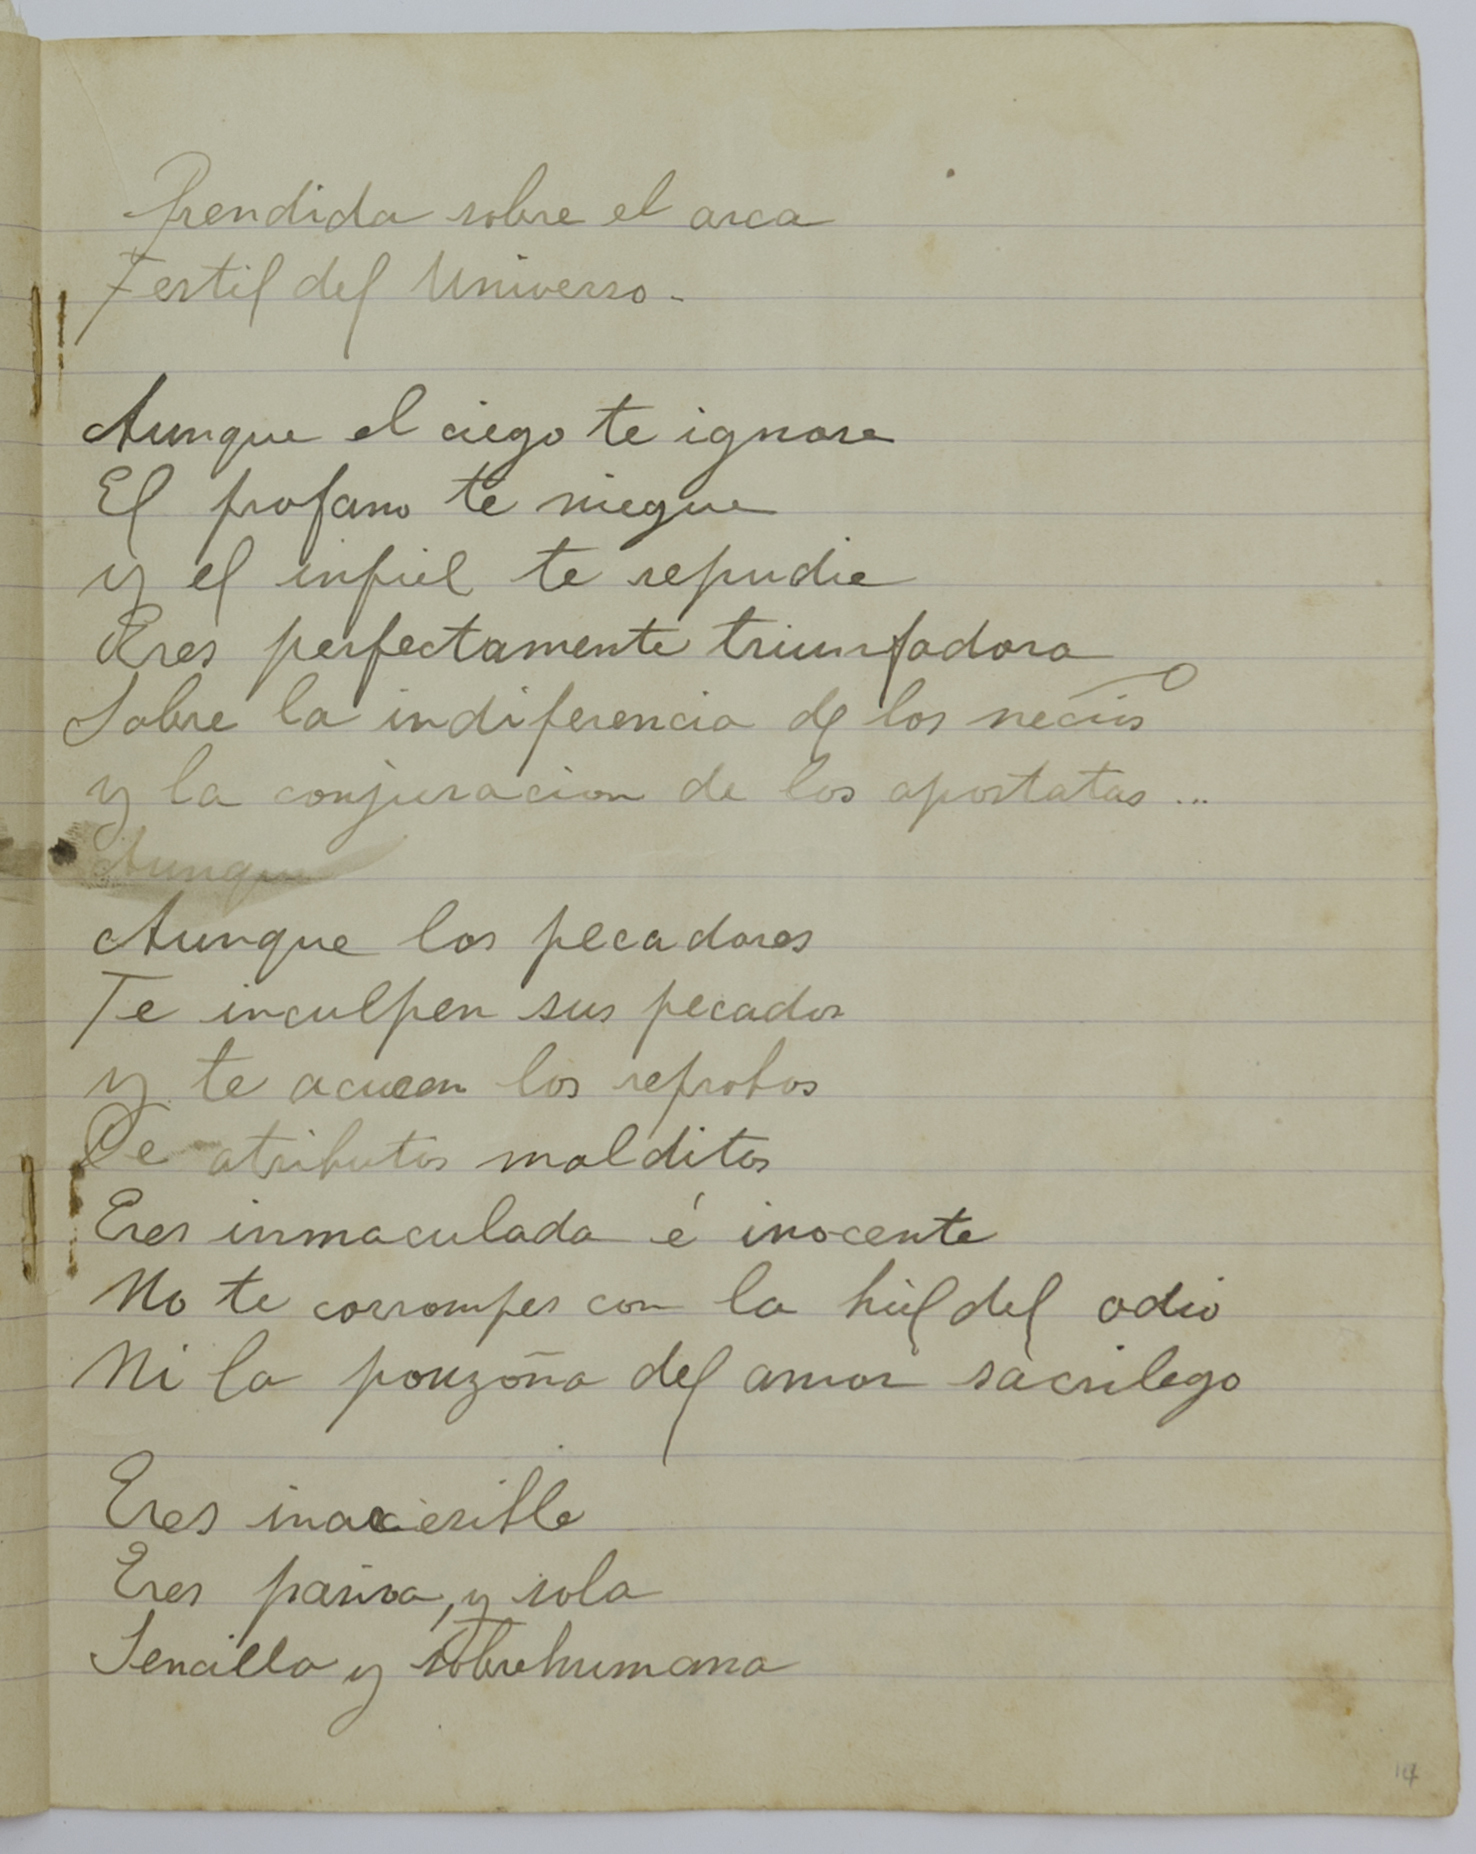 Prendida sobre el arca
Fertil del Universo.
Aunque el ciego te ignore
El profano te niegue
y el infiel te repudie
Eres perfectamente triunfadora
Sobre la indiferencia de los necios
y la conjuracion de los apostatas ...
Aunque
Aunque los pecadores
Te inculpen sus pecados
y te acusen los reprobos
De atributos malditos
Eres inmaculada é inocente
No te corrompes con la hiel del odio
Ni la ponzoña del amor sacrilego
Eres inaccesible
Eres pasiva, y sola
Sencilla y sobrehumana
14